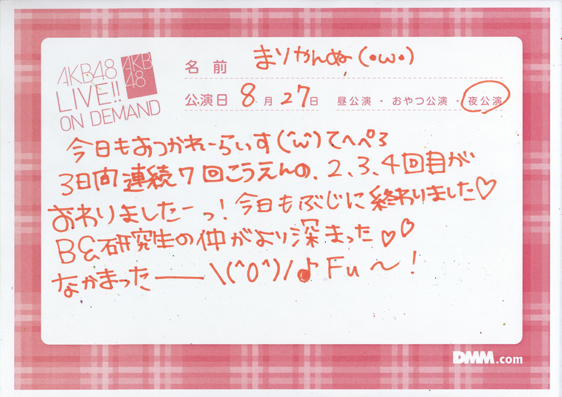 AKB48
LIVE!!
ON DEMAND
AKB
48
名前 まりやんぬ(・ω・)
公演日 8月27日 昼公演・おやつ公演・夜公演
今日もおつかれーらいす(^ω^)てへぺろ
3日間連続7回こうえんの、2、3、4回目が
おわりましたーっ!今日もぶじに終わりました♡
B&研究生の仲がより深まった♡♡
なかまったー\(^O^)/♪Fu〜!
DMM.com